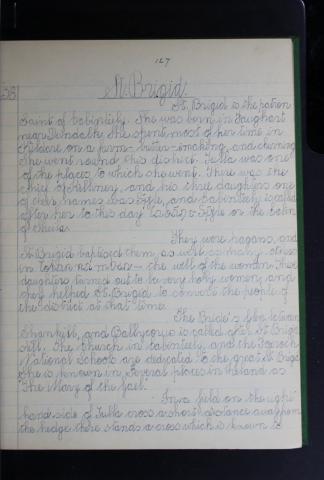 127
38
St. Brigid.
St. Brigid is the patron
saint of Cabinteely. She was born in Faughart
near Dundalk. She spent most of her time in
Kildare on a farm - butter-making, and churning
She went round this district. Tulla was one
of the places to which she went. There was the
chief of and his three daughters one
of their names was and Cabinteely is called
after her to this day or the Cabin
of Sheela.
They were pagans, and
St Brigid baptised them, as well as many others
in - the well of the women. These
daughters turned out to be very holy women, and
they helped St. Brigid to convert the people of
the district at that time.
The Bride's Glen between
Shankill, and Ballycorus is called after St. Brigid
still. The church in Cabinteely, and the Parochial
National Schools are dedicated to the great St. Brigid
She is known in several places in Ireland as
"The Mary of the Gael."
In a field on the right
hand side of Tulla cross a short distance away from
the hedge there stands a cross which is known to